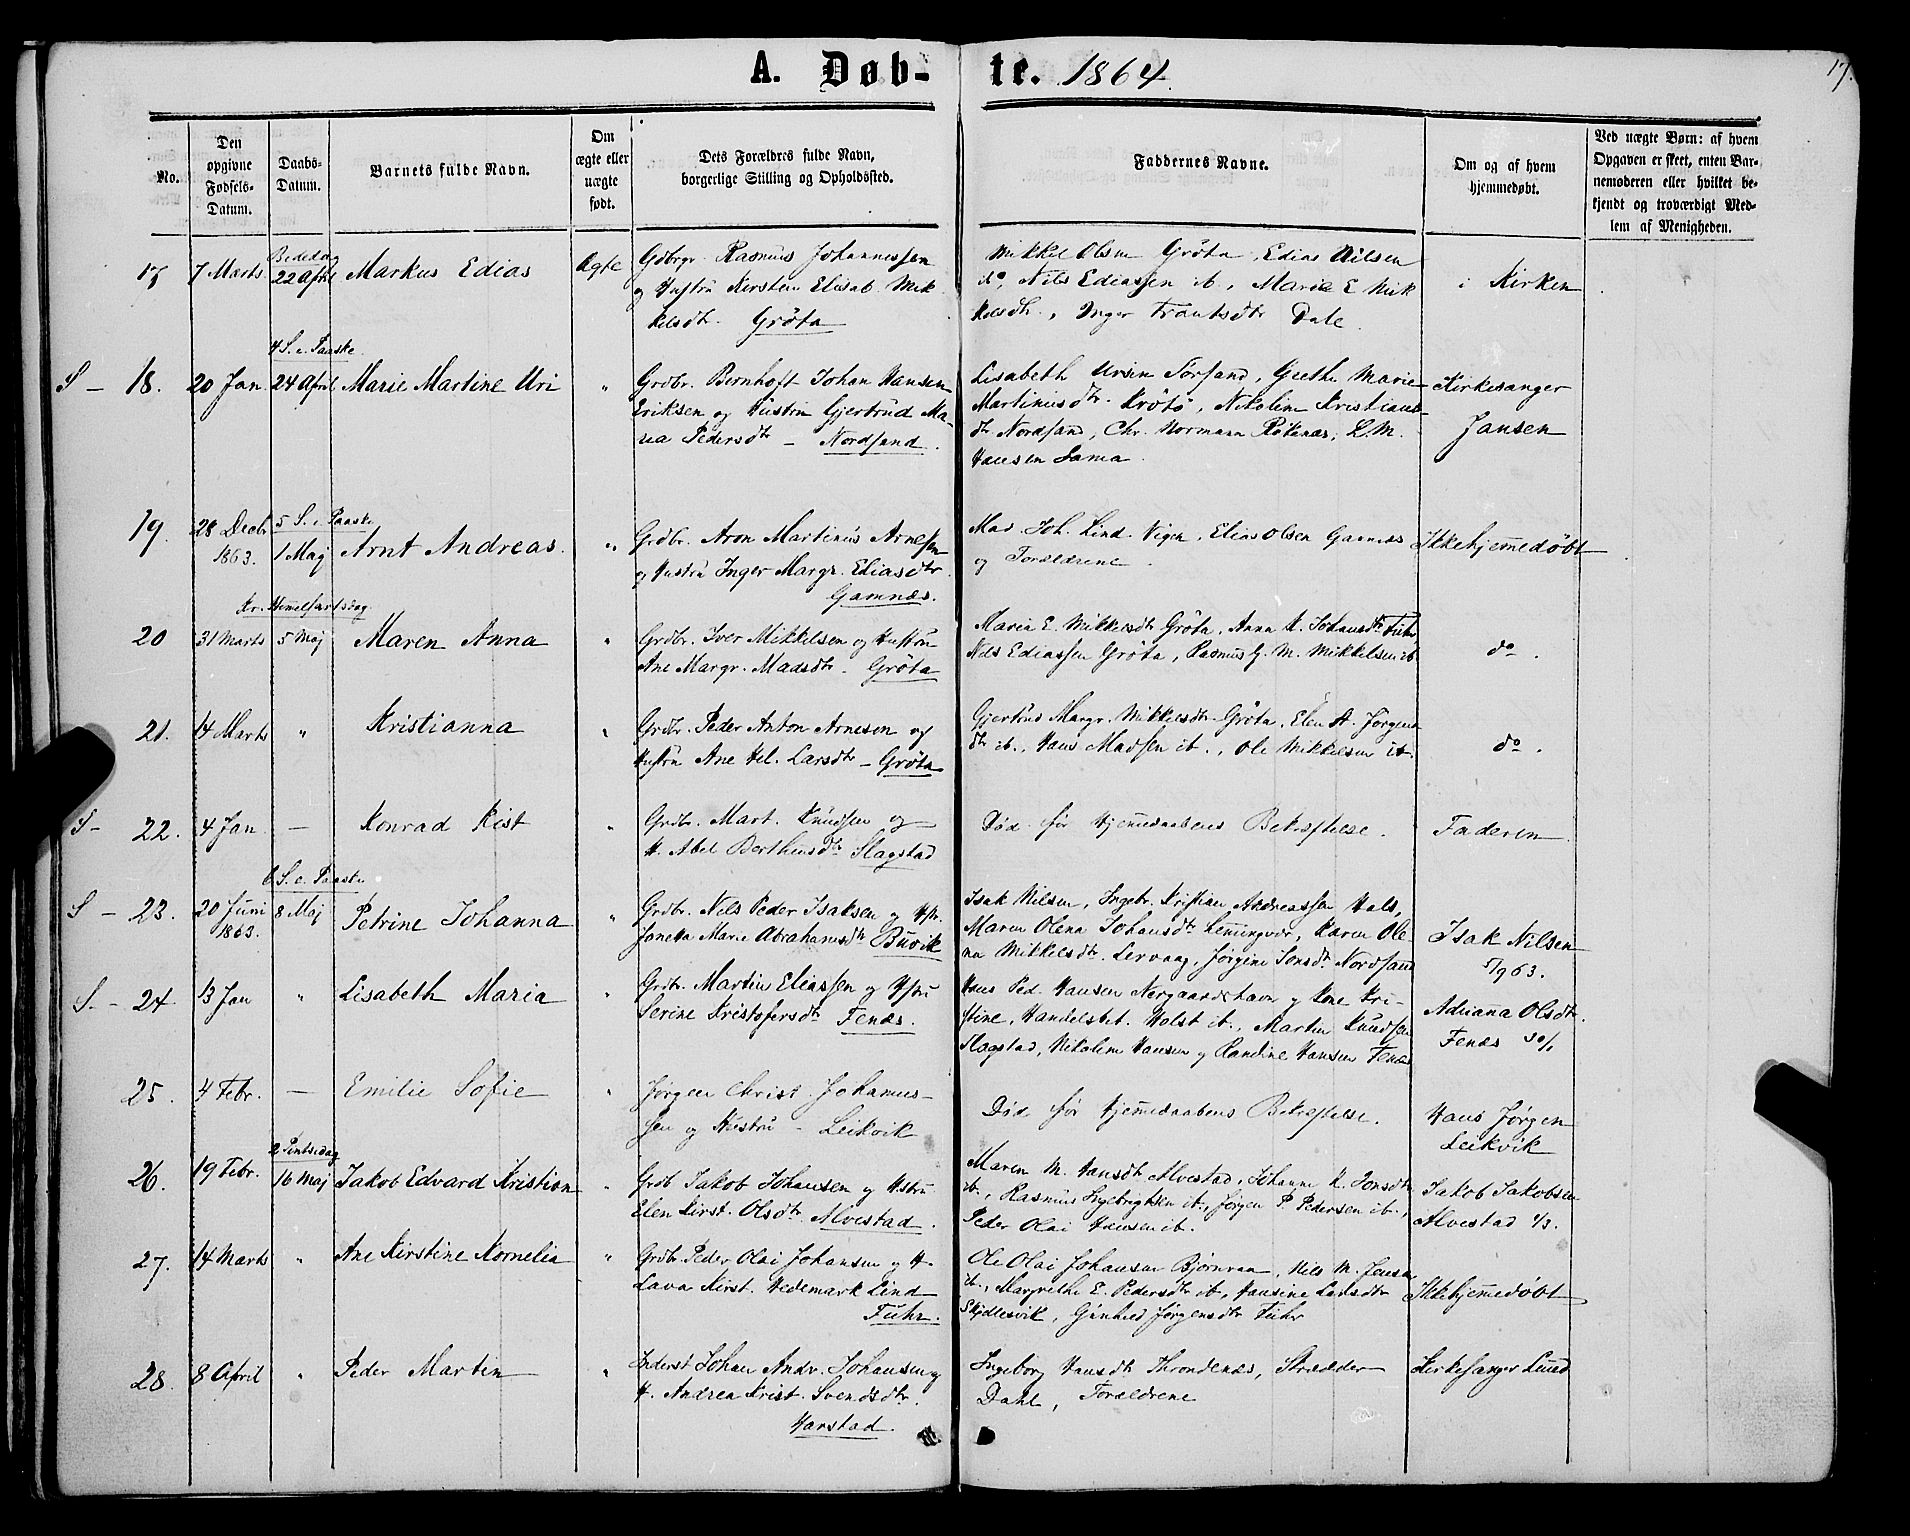 A. Døb- te. 1864.
17.
No.
Den opgivne Fødsels-Datum.
Daabs-Datum.
Barnets fulde Navn.
Om ægte eller uægte født.
Dets Forældres fulde Navn, borgerlige Stilling og Opholdssted.
Faddernes Navne.
Om og af hvem hjemmedøbt.
Ved uægte Børn: af hvem Opgaven er skeet, enten Barnemoderen eller hvilket bekjendt og troværdigt Medlem af Menigheden.
Bededag
17 7 Marts 22 April Markus Edias Ægte Gdbrgr. Rasmus Johannessen
og Hustru Kirsten Elisab. Mik-
kelsdtr. Grøta
Mikkel Olsen Grøta, Edias Nilsen
do, Nils Ediassen ib., Maria E Mik
kelsdtr., Inger Dale.
i Kirken
4 S. e. Paaske
S - 18. 20 Jan. 24 April Marie Martine Uri " Grdbr. Bernhoft Johan Hansen
Eriksen og Hustru Gjertrud Ma-
ria Pedersdtr - Nordsand.
Lisabeth Ursin Torsand, Grethe Marie
Martinusdtr. Krøtø, Nikoline Kristians-
dtr Nordsand, Chr. Normann Røkenæs, L. M.
Hansen Sama.
Kirkesanger
Jansen
19. 28 Decbr 5 S. e. Paaske
1863. 1 Maj Arnt Andreas. " Grdbr. Aron Martinus Arnesen
og Hustru Inger Margr. Eliasdtr
Gamnæs.
Mad. Joh. Lind. Vigen, Elias Olsen Gamnæs
og Forældrene.
Ikkehjemmedøbt
Kr. Himmelfartsdag
20 31 Marts 5 Maj Maren Anna " Grdbr. Iver Mikkelsen og Hustru
Ane Margr. Madsdtr - Grøta
Maria E. Mikkelsdtr Grøta, Anna K. Johansdtr Fuhr,
Nils Ediassen Grøta, Rasmus G. M. Mikkelsen ib
do.
21. 14 Marts " Kristianna " Grdbr. Peder Anton Arnesen og
Hustru Ane Hel. Larsdtr - Grøta
Gjertrud Margr. Mikkelsdtr Grøta, Elen A. Jørgens
dtr ib., Hans Madsen ib., Ole Mikkelsen ib.
do.
S- 22. 4 Jan - Konrad Kist " Grdbr. Mart. Knudsen og
H. Abel Berthinsdtr Slagstad
Død før Hjemmedaabens Bekræftelse.
Faderen
6 S. e. Paaske
S - 23. 20 Juni 8 Maj Petrine Johanna " Grdbr. Nils Peder Isaksen og Hstr.
1863. Janetta Marie Abrahamsdtr Buvik
Isak Nilsen, Ingebr. Kristian Andreassen Hals,
Maren Olena Johansdtr Lemmingvær, Karen Ole-
na Mikkelsdtr. Lervaag, Jørgine Jonsdtr Nordsand
Isak Nilsen
5/9 63.
S. - 24 13 Jan " Lisabeth Maria " Grdbr. Martin Eliassen og Hstru
Serine Kristofersdtr Fenæs.
Hans Ped. Hansen Nergaardshavn og Kone Kri-
stine, Handelsbet. Holst ib., Martin Knudsen
Slagstad, Nikoline Hansen og Randine Hansen Fenæs
Adrianna Olsdtr.
Fenæs 30/1
25. 4 Febr. - Emilie Sofie " Jørgen Christ Johannes-
sen og Hustru - Leikvik
Død før Hjemmedaabens Bekræftelse.
Hans Jørgen
Leikvik
2 Pintsedag
26. 19 Febr. 16 Maj Jakob Edvard Kristian " Grdb Jakob Johansen og Hstru
Elen Kirst. Olsdtr. Alvestad.
Maren M. Hansdtr Alvestad, Johanne K. Jonsdtr
ib., Rasmus Ingebrigtsen ib., Jørgen P. Pedersen ib.,
Peder Olai Hansen ib.
Jakob Jakobsen
Alvestad 1/3.
27. 14 Marts " Ane Kirstine Kornelia " Grdbr Peder Olai Johansen og H.
Lava Kirst. Hedemark Lind
Fuhr.
Ole Olai Johansen Bjørnraa, Nils M. Jensen
ib., Margrethe E. Pedersdtr ib., Hansine Larsdtr
Skjellesvik, Gunhild Jørgensdtr Fuhr
Ikkehjemmedøbt
28. 8 April " Peder Martin " Inderst Johan Andr. Johansen og
H. Andrea Krist. Svendsdtr.
Harstad.
Ingeborg Hansdtr Throndenæs, Skrædder
Dahl, Forældrene
Kirkesanger Lund